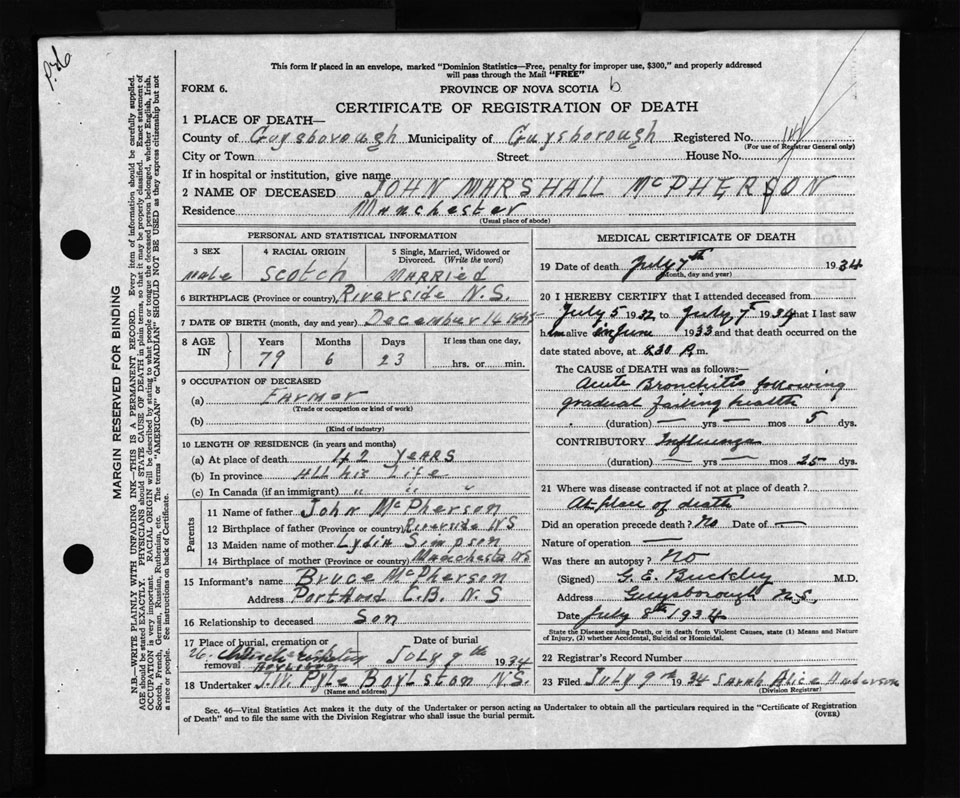 P.26
This form if placed in an envelope, marked "Dominion Statistics—Free, penalty for improper use, $300," and properly addressed
will pass through the Mail "FREE"
FORM 6.
PROVINCE OF NOVA SCOTIA b
CERTIFICATE OF REGISTRATION OF DEATH
1 PLACE OF DEATH—
County of Guysborough Municipality of Guysborough Registered No.
(For use of Registrar General only)
City or Town Street House No.
If in hospital or institution, give name
2 NAME OF DECEASED JOHN MARSHALL McPHERSON
Residence Manchester
(Usual place of abode)
PERSONAL AND STATISTICAL INFORMATION
3 SEX 4 RACIAL ORIGIN 5 Single, Married, Widowed or
Divorced. (Write the word)
male Scotch Married
6 BIRTHPLACE (Province or country) Riverside N.S.
7 DATE OF BIRTH (month, day and year) December 14
8 AGE IN Years Months Days If less than one day,
79 6 23 hrs. or min.
9 OCCUPATION OF DECEASED
(a) Farmer
(Trade or occupation or kind of work)
(b)
(Kind of industry)
10 LENGTH OF RESIDENCE (in years and months)
(a) At place of death 42 years
(b) In province All his Life
(c) In Canada (if an immigrant) " " "
Parents
11 Name of father John McPherson
12 Birthplace of father (Province or country) Riverside NS
13 Maiden name of mother Lydia Simpson
14 Birthplace of mother (Province or country) Manchester NS
15 Informant's name Bruce McPherson
Address Porthood C.B. N.S
16 Relationship to deceased Son
17 Place of burial, cremation or Date of burial
removal Boylston July 9th 1934
18 Undertaker J.W. Pyle Boylston N.S.
(Name and address)
MEDICAL CERTIFICATE OF DEATH
19 Date of death July 7th 1934
(Month, day and year)
20 I HEREBY CERTIFY that I attended deceased from
July 5 1932 to July 7th 1934 that I last saw
him alive in June 1933 and that death occurred on the
date stated above, at 8.30 A m.
The CAUSE of DEATH was as follows:—
Acute Bronchitis following
gradual failing health
(duration) — yrs — mos 5 dys.
CONTRIBUTORY Influenza
(duration) — yrs — mos 25 dys.
21 Where was disease contracted if not at place of death?
At place of death
Did an operation precede death? No Date of —
Nature of operation —
Was there an autopsy? No
(Signed) G. E. Buckley M.D.
Address Guysborough N.S.
Date July 8th 1934
State the Disease causing Death, or in death from Violent Causes, state (1) Means and Nature
of Injury, (2) whether Accidental, Suicidal or Homicidal.
22 Registrar's Record Number
23 Filed July 9th 1934 Sarah Alice Anderson
(Division Registrar)
Sec. 46—Vital Statistics Act makes it the duty of the Undertaker or person acting as Undertaker to obtain all the particulars required in the "Certificate of Registration
of Death" and to file the same with the Division Registrar who shall issue the burial permit.
(OVER)
MARGIN RESERVED FOR BINDING
N.B.—WRITE PLAINLY WITH UNFADING INK—THIS IS A PERMANENT RECORD. Every item of information should be carefully supplied.
AGE should be stated EXACTLY. PHYSICIANS should STATE CAUSE OF DEATH in plain terms, so that it may be properly classified. Exact statement of
OCCUPATION is very important. RACIAL ORIGIN will be described by stating to what people or tongue the deceased person belonged, whether English, Irish,
Scotch, French, German, Russian, Ruthenian, etc. The terms "AMERICAN" or "CANADIAN" SHOULD NOT BE USED as they express citizenship but not
a race or people. See instructions on back of Certificate.